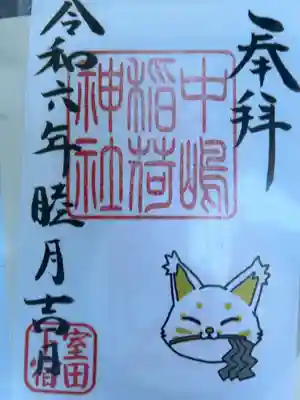 奉拝
中嶋
稲荷
神社
令和六年睦月吉日
室田